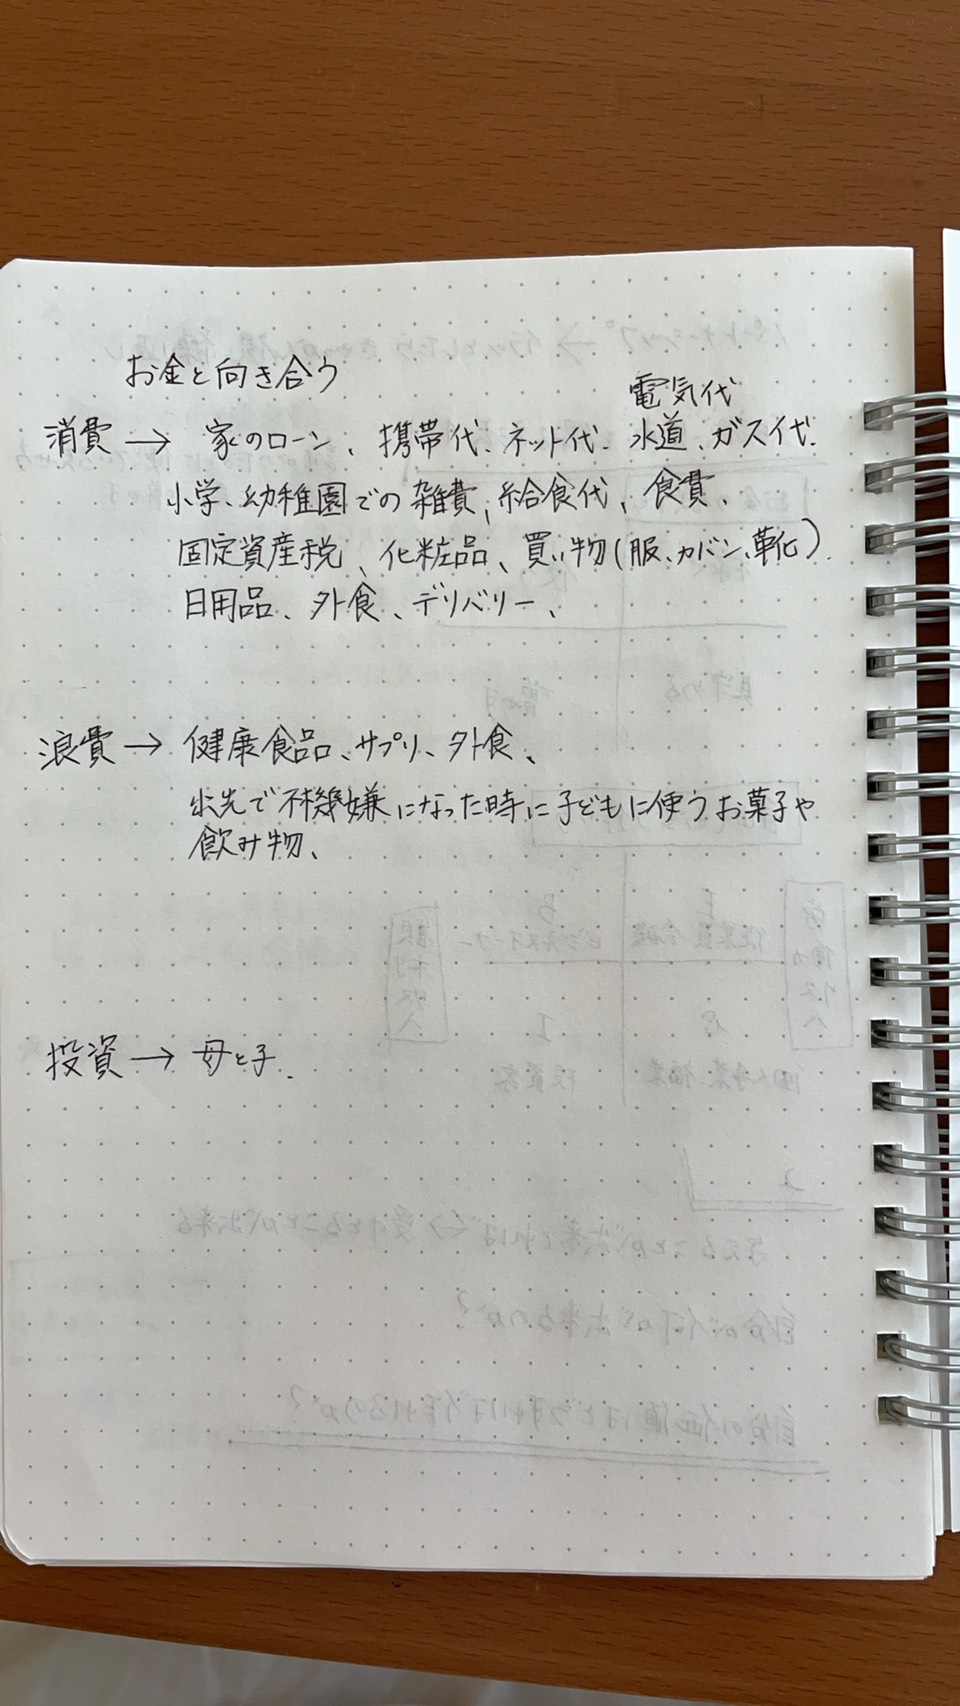 お金と向き合う
電気代
消費 → 家のローン、携帯代、ネット代、水道、ガス代、
小学、幼稚園での雑費、給食代、食費、
固定資産税、化粧品、買い物(服、カバン、靴)、
日用品、外食、デリバリー、
浪費 → 健康食品、サプリ、外食、
出先で不機嫌になった時に子どもに使うお菓子や
飲み物、
投資 → 母と子、